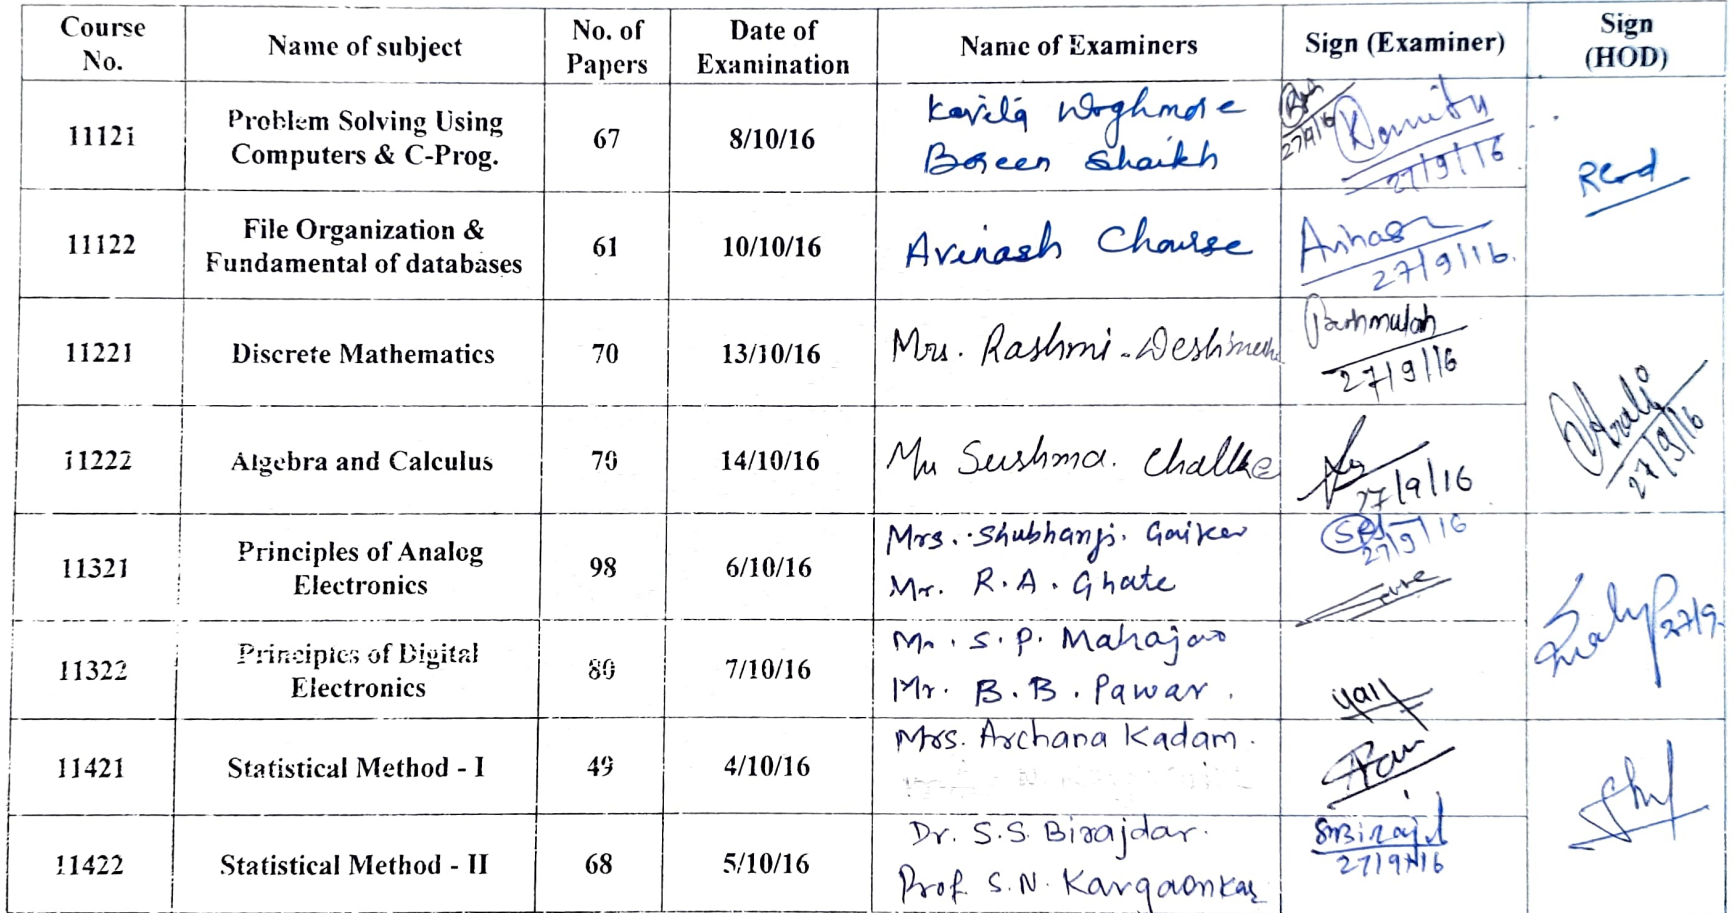 Course No. | Name of subject | No. of Papers | Date of Examination | Name of Examiners | Sign (Examiner) | Sign (HOD)
11121 | Problem Solving Using Computers & C-Prog. | 67 | 8/10/16 | Kavita Waghmare | 27/9/16 | 27/9/16
Shaikh
11122 | File Organization & Fundamental of databases | 61 | 10/10/16 | Avinash Chourse | 27/9/16
11221 | Discrete Mathematics | 70 | 13/10/16 | Mrs. Rashmi Deshmukh | 27/9/16
11222 | Algebra and Calculus | 70 | 14/10/16 | Sushma. Chalke | 27/9/16 | 27/9/16
11321 | Principles of Analog Electronics | 98 | 6/10/16 | Mrs. Shubhangi. Gaikar | 27/9/16
Mr. R.A. Ghate
11322 | Principles of Digital Electronics | 80 | 7/10/16 | Mr. S.P. Mahajan | 27/9
Mr. B.B. Pawar.
11421 | Statistical Method - I | 49 | 4/10/16 | Mrs. Archana Kadam.
11422 | Statistical Method - II | 68 | 5/10/16 | Dr. S.S. Birajdar. | 27/9/16
Prof. S.N. Kargaonkar